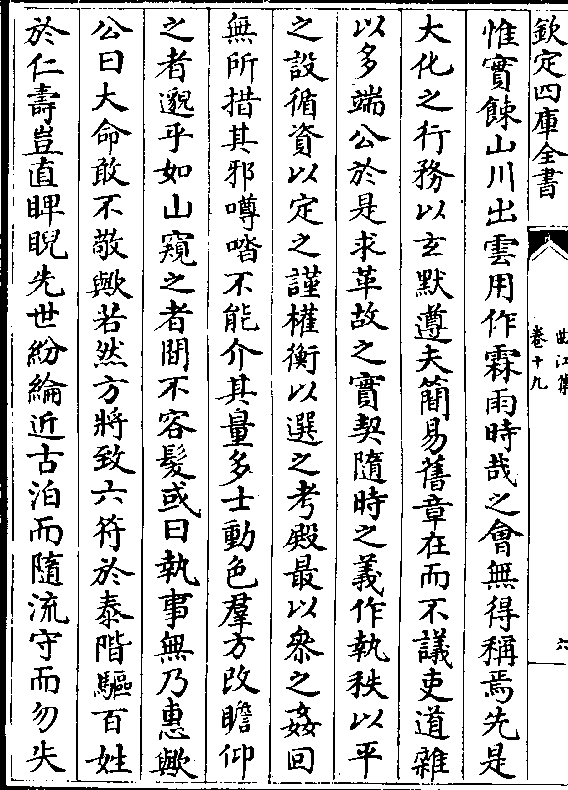 欽定四庫全書
曲江集
卷十九
六
惟實餗山川出雲用作霖雨時哉之會無得稱焉先是
大化之行務以玄默遵夫簡易舊章在而不議吏道雜
以多端公於是求革故之實契隨時之義作執秩以平
之設循資以定之謹權衡以選之考殿最以叅之姦回
無所措其邪噂㳫不能介其量多士動色羣方改瞻仰
之者邈乎如山窺之者間不容髮或曰執事無乃惠歟
公曰大命敢不敬歟若然方將致六符於泰階驅百姓
於仁壽豈直睥睨先世紛綸近古泊而隨流守而勿失